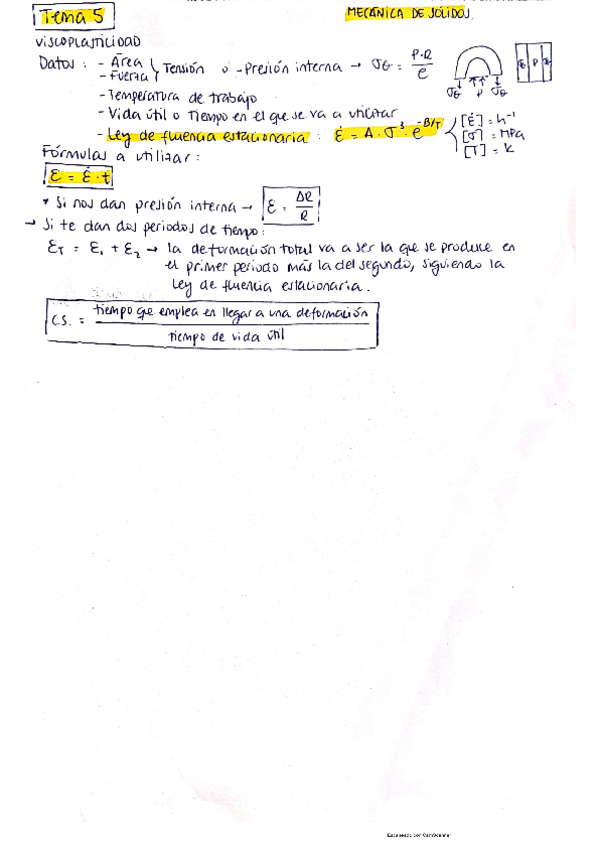 Tema 5
MECÁNICA DE SÓLIDOS.
VISCOPLASTICIDAD
Datos : - Área
- Fuerza } Tensión o - Presión interna → σθ = P·R / e
σθ P σθ
e P e
- Temperatura de trabajo
- Vida útil o tiempo en el que se va a utilizar
- Ley de fluencia estacionaria : ε̇ = A · σ³ · e^(-B/T)
[ε̇] = h⁻¹
[σ] = MPa
[T] = K
Fórmulas a utilizar :
ε = ε̇ · t
* Si nos dan presión interna → ε = ΔR / R
→ Si te dan dos periodos de tiempo:
εT = ε₁ + ε₂ → la deformación total va a ser la que se produce en
el primer periodo más la del segundo, siguiendo la
ley de fluencia estacionaria.
C.S. = tiempo que emplea en llegar a una deformación
tiempo de vida útil
Escaneado con CamScanner